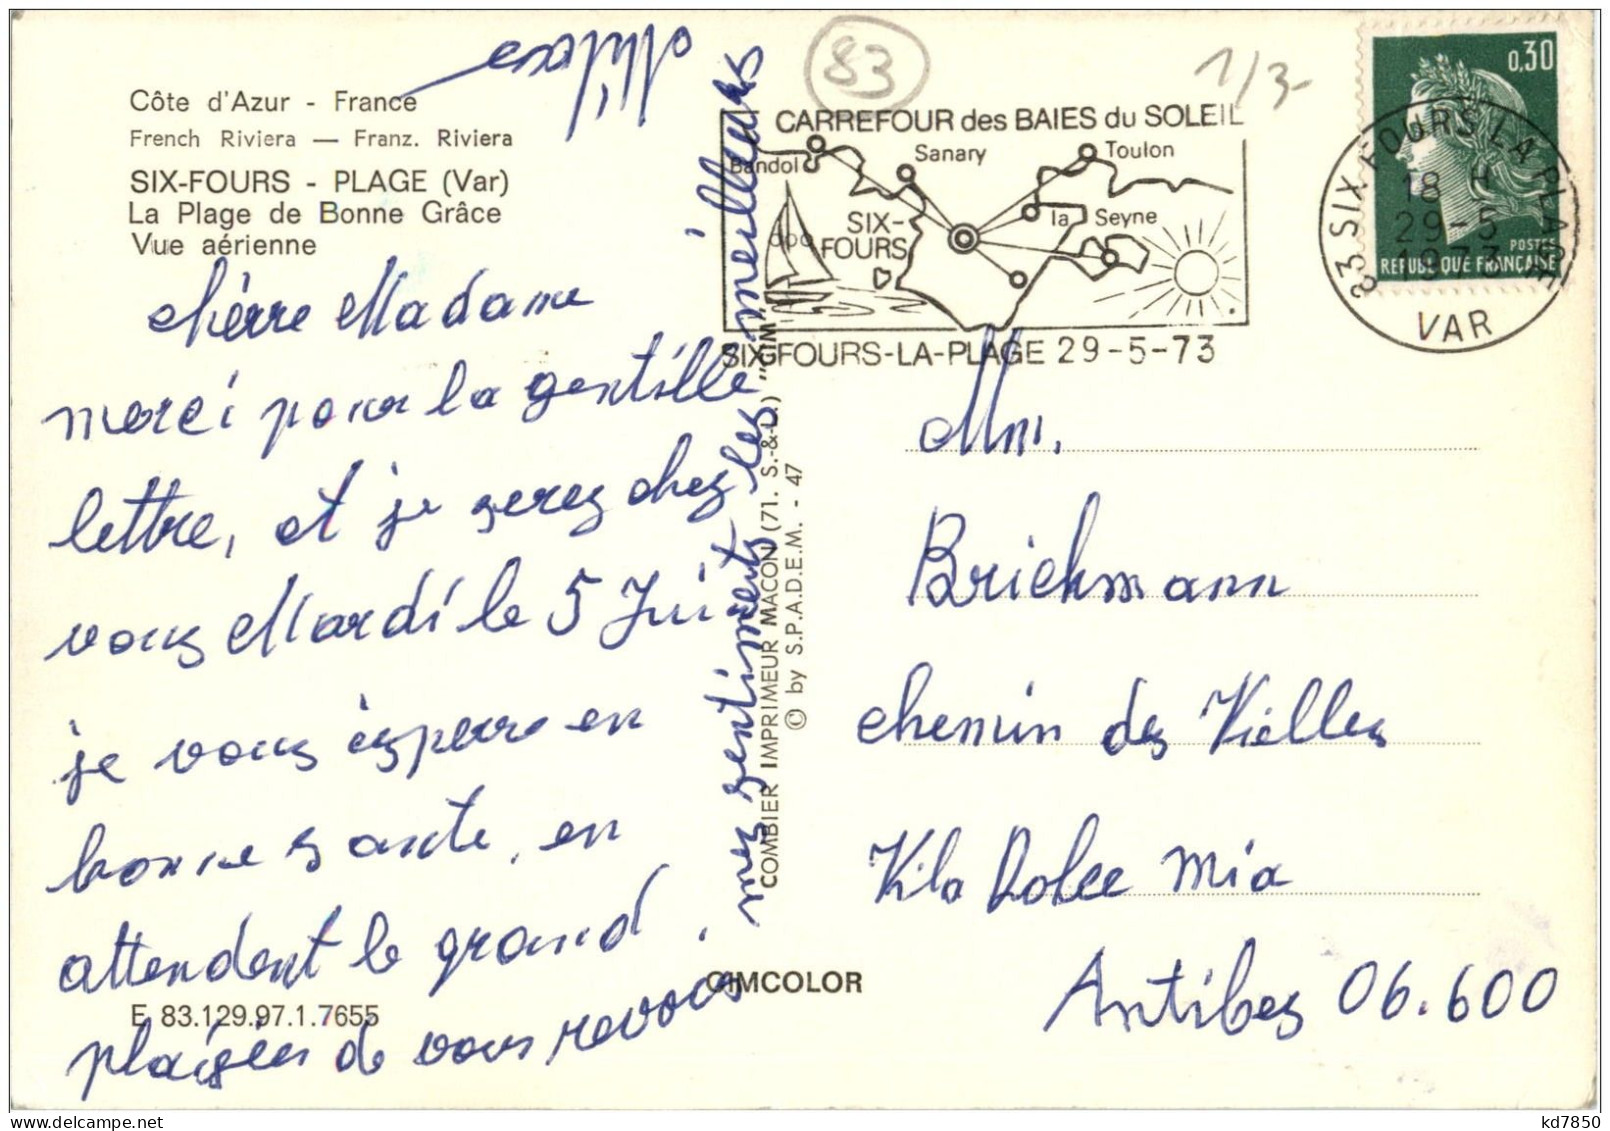 Côte d'Azur - France
French Riviera — Franz. Riviera
SIX-FOURS - PLAGE (Var)
La Plage de Bonne Grâce
Vue aérienne
chèrre Madame
merci pour la gentille
lettre, et je serez chez
vous Mardi le 5 Juin
je vous èspere en
bonne sante, en
attendent le grand
plaisier de vous revoir,
mes sentiments les meilleurs
E 83.129.97.1.7655
CIMCOLOR
COMBIER IMPRIMEUR MACON (71. S.-&-L.) "CIM"
© by S.P.A.D.E.M. - 47
83
1/3-
CARREFOUR des BAIES du SOLEIL
Bandol
Sanary
Toulon
la Seyne
SIX-
FOURS
SIX-FOURS-LA-PLAGE 29-5-73
0,30
POSTES
REPUBLIQUE FRANÇAISE
83 SIX FOURS LA PLAGE
18 H
29-5
1973
VAR
Mm.
Brickmann
chemin des Vielles
Vila Dolce Mia
Antibes 06.600
kd7850